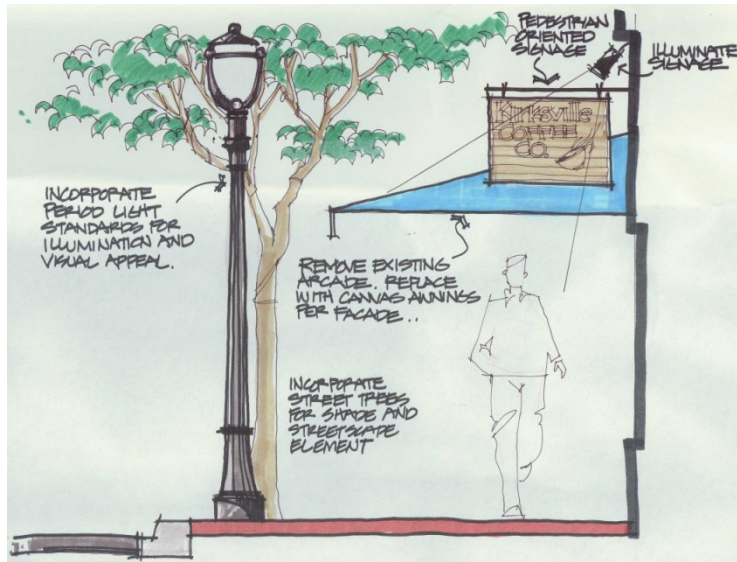 PEDESTRIAN
ORIENTED
SIGNAGE
ILLUMINATE
SIGNAGE
Kirksville
COFFEE
CO.
INCORPORATE
PERIOD LIGHT
STANDARDS FOR
ILLUMINATION AND
VISUAL APPEAL.
REMOVE EXISTING
ARCADE. REPLACE
WITH CANVAS AWNINGS
PER FACADE..
INCORPORATE
STREET TREES
FOR SHADE AND
STREETSCAPE
ELEMENT